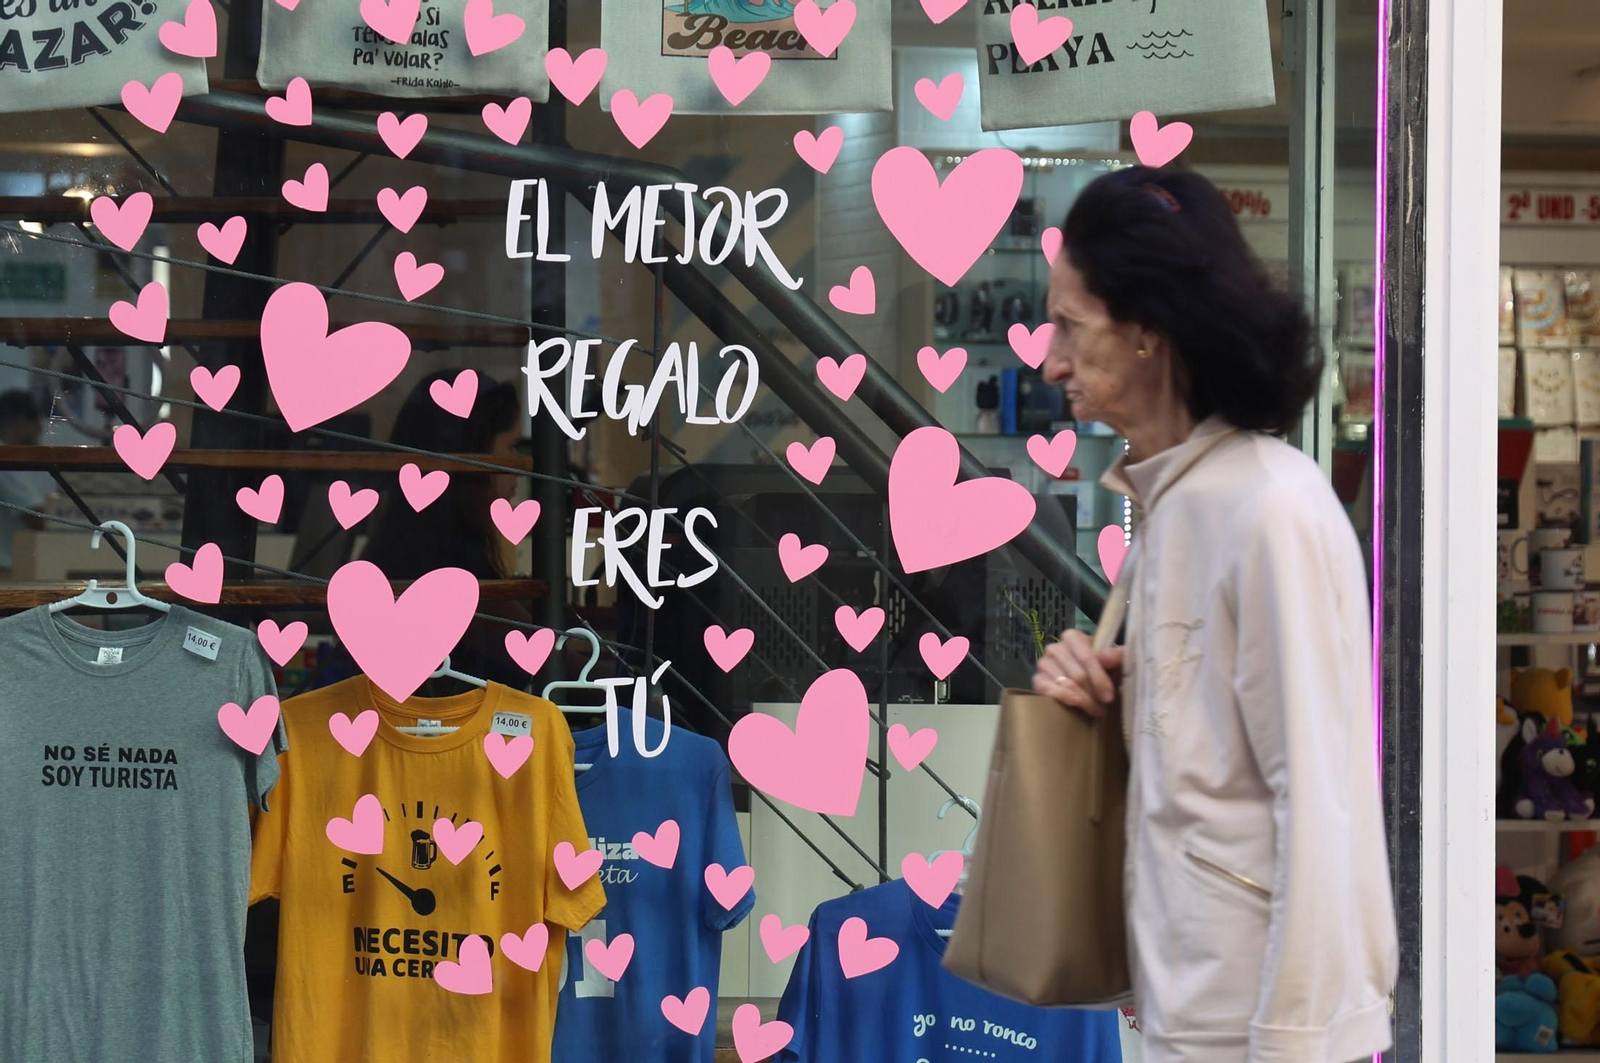 AZAR!
Si
TENGO alas
Pa' volar?
-Frida Kahlo-
Beach
PLAYA
50%
2ª UND -5
EL MEJOR
REGALO
ERES
TÚ
14,00 €
NO SÉ NADA
SOY TURISTA
14,00 €
E
F
NECESITO
UNA CER
liza
eta
yo no ronco